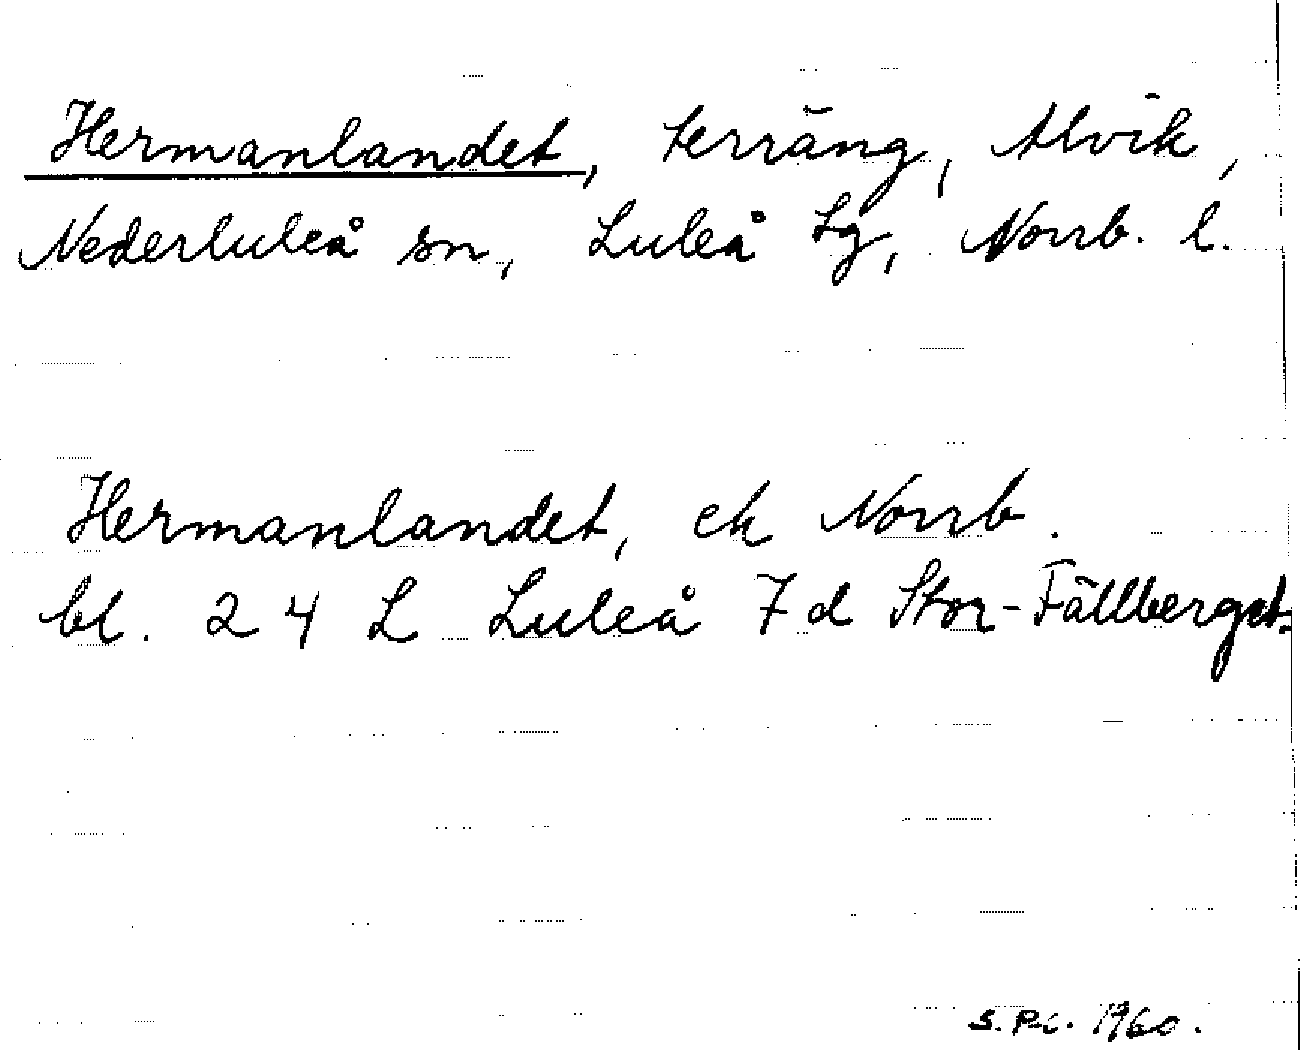 Hermanlandet, terräng, Alvik,
Nederluleå sn, Luleå tg, Norrb. l.
Hermanlandet, ek Norrb.
bl. 24 L Luleå 7d Stor-Fällberget.
S.P.c. 1960.